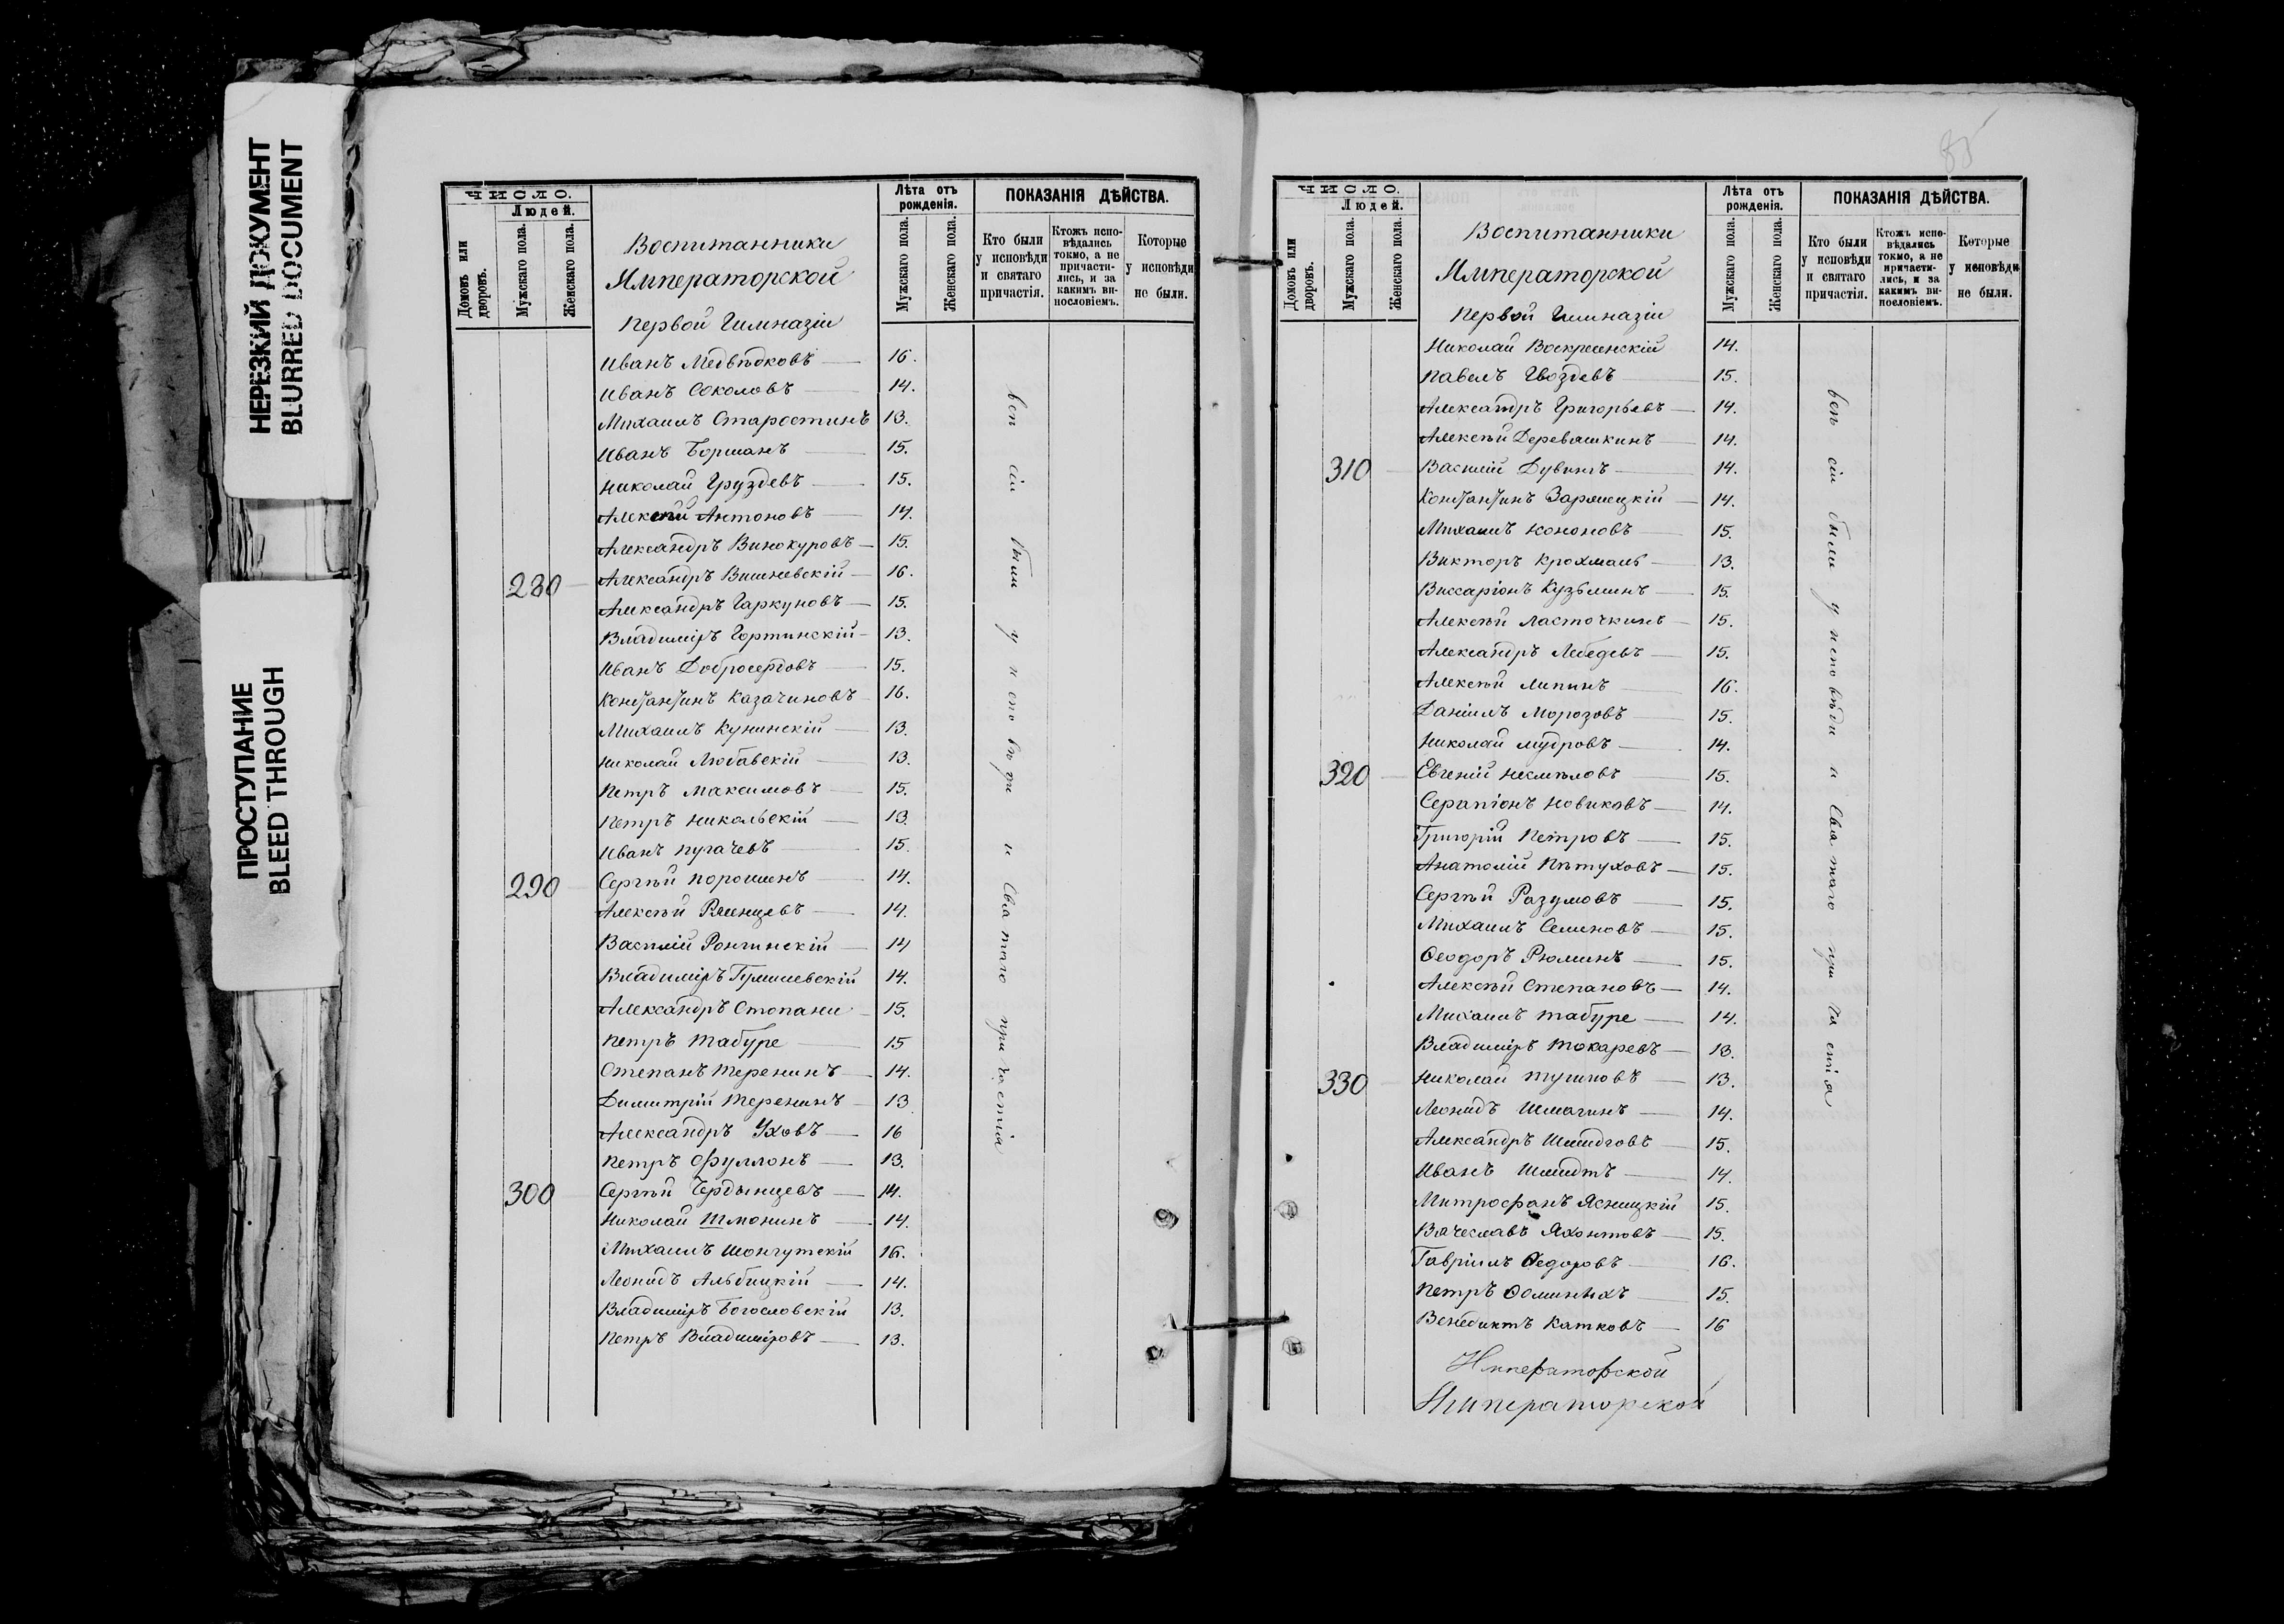 НЕРЕЗКИЙ ДОКУМЕНТ
BLURRED DOCUMENT
ПРОСТУПАНИЕ
BLEED THROUGH
ЧИСЛО.
Людей.
Домовъ или дворовъ.
Мужскаго пола.
Женскаго пола.
Воспитанники
Императорской
Первой Гимназіи
Лѣта отъ рожденія.
Мужскаго пола.
Женскаго пола.
ПОКАЗАНІЯ ДѢЙСТВА.
Кто были у исповѣди и святаго причастія.
Ктожъ исповѣдались токмо, а не причастились, и за какимъ винословіемъ.
Которые у исповѣди не были.
Иванъ Медвѣдковъ — 16.
Иванъ Соколовъ — 14.
Михаилъ Старостинъ 13.
Иванъ Борманъ — 15.
Николай Груздевъ — 15.
Алексѣй Антоновъ — 14.
Александръ Винокуровъ — 15.
280 Александръ Вишневскій — 16.
Александръ Гаркуновъ — 15.
Владиміръ Гортинскій — 13.
Иванъ Добросердовъ — 15.
Константинъ Казачиновъ 16.
Михаилъ Кунинскій — 13.
Николай Любавскій — 13.
Петръ Максимовъ — 15.
Петръ Никольскій — 13.
Иванъ Пугачевъ — 15.
290 Сергѣй Порошинъ — 14.
Алексѣй — 14.
Василій Ронгинскій — 14
Владиміръ 14.
Александръ Стопани — 15.
Петръ Табуре — 15
Степанъ Теренинъ — 14.
Димитрій Теренинъ — 13
Александръ Уховъ — 16
Петръ Фуллонъ — 13.
300 Сергѣй Чердынцевъ — 14.
Николай Шмонинъ — 14.
Михаилъ Шонгутскій 16.
Леонидъ Альбицкій — 14.
Владиміръ Богословскій 13.
Петръ Владиміровъ — 13.
всѣ сіи были у исповѣди и Святаго причастія
85
ЧИСЛО.
Людей.
Домовъ или дворовъ.
Мужскаго пола.
Женскаго пола.
Воспитанники
Императорской
Первой Гимназіи
Лѣта отъ рожденія.
Мужскаго пола.
Женскаго пола.
ПОКАЗАНІЯ ДѢЙСТВА.
Кто были у исповѣди и святаго причастія.
Ктожъ исповѣдались токмо, а не причастились, и за какимъ винословіемъ.
Которые у исповѣди не были.
Николай Воскресенскій 14.
Павелъ Гвоздевъ — 15.
Александръ Григорьевъ — 14.
Алексѣй Деревяшкинъ — 14.
310 Василій — 14.
Константинъ Зарницкій — 14.
Михаилъ Кононовъ — 15.
Викторъ Крохмаль — 13.
Виссаріонъ Кузьминъ — 15.
Алексѣй Ласточкинъ — 15.
Александръ Лебедевъ — 15.
Алексѣй Липинъ — 16.
Даніилъ Морозовъ — 15.
Николай Мудровъ — 14.
320 Евгеній Несмѣловъ — 15.
Серапіонъ Новиковъ — 14.
Григорій Петровъ — 15.
Анатолій Пѣтуховъ — 15.
Сергѣй Разумовъ — 15.
Михаилъ Семеновъ — 15.
Ѳеодоръ Рюминъ — 15.
Алексѣй Степановъ — 14.
Михаилъ Табуре — 14.
Владиміръ Токаревъ — 13.
330 Николай Тупиковъ — 13.
Леонидъ Шмагинъ — 14.
Александръ — 15.
Иванъ Шмидтъ — 14.
Митрофанъ Ясницкій 15.
Вячеславъ Яхонтовъ — 15.
Гавріилъ Ѳедоровъ — 16.
Петръ Ѳоминыхъ — 15.
Венедиктъ Катковъ — 16
всѣ сіи были у исповѣди и Святаго причастія
Императорской
Императорской